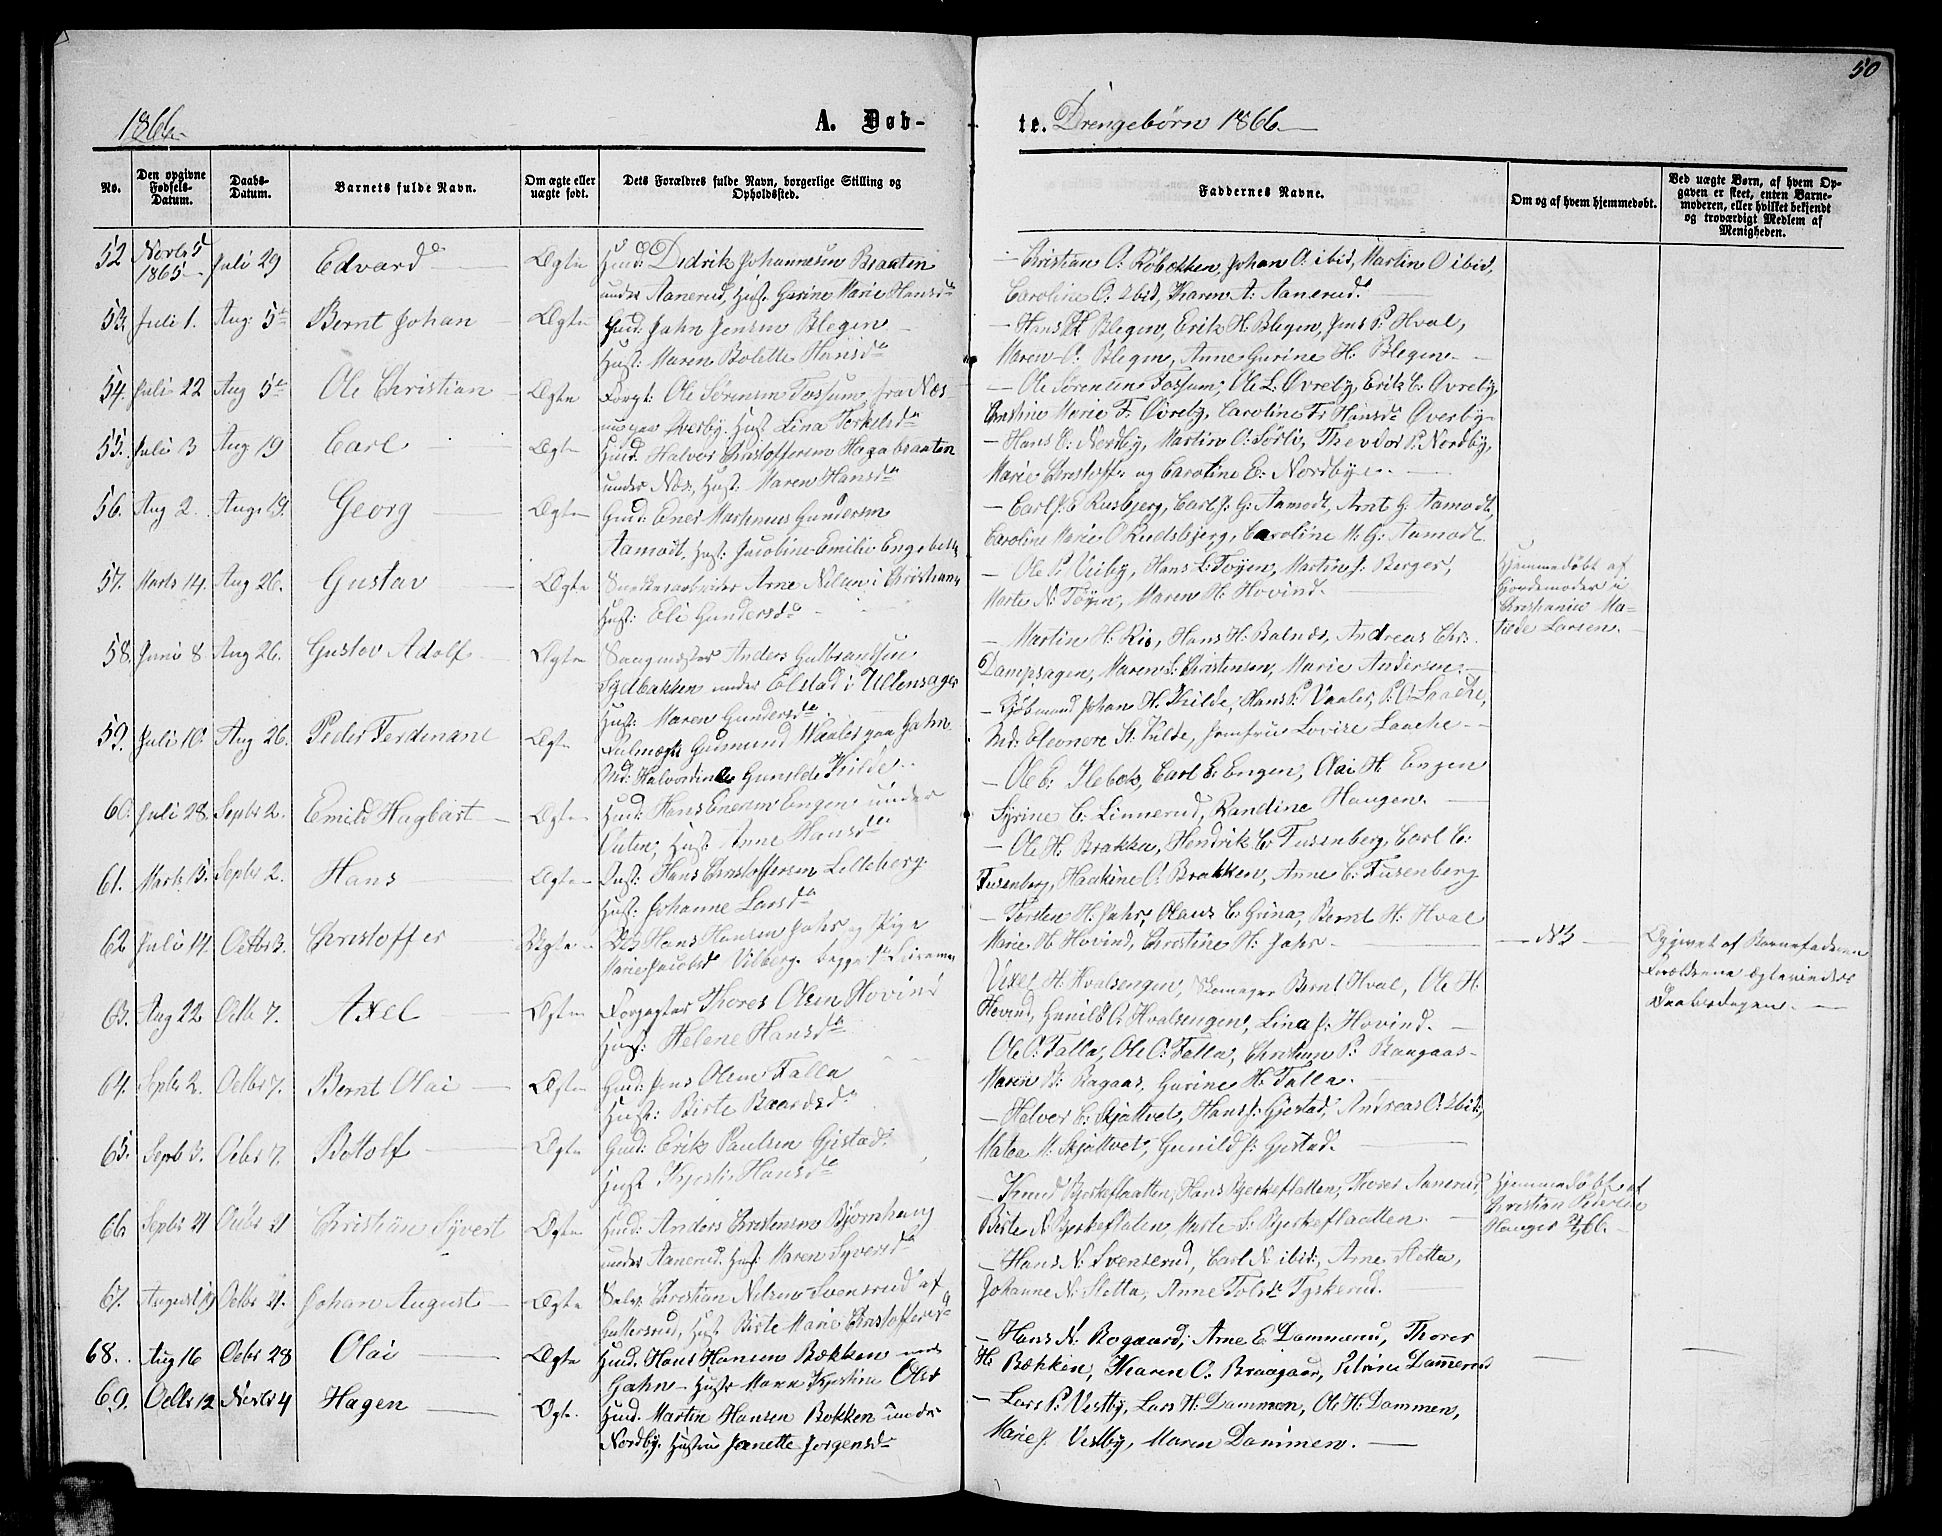 50
1866.
A. Døb-
te. Drengebørn 1866.
No.
Den opgivne Fødsels-Datum.
Daabs-Datum.
Barnets fulde Navn.
Om ægte eller uægte født.
Dets Forældres fulde Navn, borgerlige Stilling og Opholdssted.
Faddernes Navne.
Om og af hvem hjemmedøbt.
Ved uægte Børn, af hvem Op-
gaven er skeet, enten Barne-
moderen, eller hvilket bekjendt
og troværdigt Medlem af
Menigheden.
52 Novbr 5 1865 Juli 29 Edvard Ægte Huusm: Didrik Johannesen Braaten
under Aanerud, Hust: Gurine Marie Hansdr
Christian O. Røbækken, Johan O: ibid, Martin O ibid,
Caroline O: Ibid, Karen A: Aanerud.
53 Juli 1. Aug. 5te Bernt Johan Ægte Gud: Jahn Jensen Blegen
Hust: Maren Bolette Hansdr
Hans H Blegen, Erik H. Blegen, Jens P. Hval,
Maren P. Blegen, Anne Gurine H. Blegen
54. Juli 22 Aug 5te Ole Christian Ægte Forpt: Ole Sørensen Fossum, fra Næs
Øverby. Hust Lina Torkelsdr
Ole Sørensen Fossum, Ole L. Øvreby, Erik C. Øvreby,
Marie F. Øvreby, Caroline Fr Hansdr Øverby
55. Juli 3 Aug. 19 Carl Ægte Huusm. Halvor Christoffersen Hagabraaten
under Næs, Hust: Maren Hansdr
Hans C: Nordby, Martin O: Sørli, Theodor P. Nordby,
Marie Christoffr og Caroline E. Nordbye.
56. Aug 2. Aug. 19. Georg Ægte Gud: Ener Martinius Gundersen
Aamodt, Hust: Jacobine Emilie Engebretsdr
Carl J. E Rusbjerg, Carl J. G: Aamodt, Arnt G. Aamodt,
Caroline Marie O Rudsbjerg, Caroline M. G: Aamodt
57. Marts 14. Aug 26. Gustav Ægte Arne Nilsen i Christiania
Hust: Eli Gundersdr
Ole P. Veiby, Hans L. Tøyen, Martin J. Berger,
Marte N: Tøyen, Maren H: Hovind.
Hjemmedøbt af
Gjordemoder i
Christiania Ma-
tilde Larsen.
58. Juni 8 Aug 26. Gustav Adolf Ægte Saugmester Anders Gulbrandsen
under Elstad i Ullensager
Hust: Maren Gundersdr
Martin H. Rio, Hans H. Balnæs, Andreas Chr.
Dampsagen, Maren S. Christensen, Marie Andersen
59. Juli 10. Aug 26. Peder Ferdinand Ægte Gudmund Waaler paa Gahn
Md: Halvordine Gunilde Kilde
Kjøbmand Johan H. Kilde, Hans P. Vaaler, P. O. Laache,
Md: Eleonore St. Kilde, Jomfru Lovise Laache
60. Juli 28. Septbr 2. Emild Hagbart Ægte Huusm: Hans Enersen Engen under
Hust Anne Hansdr
Ole E: Ilebek, Carl E. Engen, Olai H. Engen
Syrine C. Linnerud, Randine Haugen.
61. Marts 13. Septbr 2. Hans Ægte Hans Christoffersen Lilleberg
Hust: Johanne Larsdr
Ole H. Brakken, Hendrik C. Tusenberg, Carl C:
Tusenberg, Haakine O. Brakken, Anne C. Tusenberg
62 Juli 14. Octbr 3. Christoffer Uægte Hans Hansen Jahr og Pige
Marie Jacobsdr Vilberg
Torsten H. Jahr, Olaus C. Grina, Bernt H. Hval
Marie H. Hovind, Christine H. Jahr.
Opgivet af Barnefaderen
Forældrene ægteviedes
Daabsdagen.
63. Aug 22 Octbr 7. Axel Ægte Forpagter Thores Olsen Hovind
Hust: Helene Hansdr
Vexel H. Hvalsengen, Skomager Bernt Hval, Ole H.
Hovind, Gunild O. Hvalsengen, Lina J. Hovind.
64. Septbr 2. Octbr 7. Bernt Olai Ægte Gud: Jens Olsen Falla
Hust: Birte Baardsdr
Ole O: Falla, Ole O. Falla, Christian P. Raugaas
Maren B. Ragaas, Gurine H. Falla.
65. Septb 3. Octbr 7. Bottolf Ægte Gud: Erik Paulsen Gjestad
Hust Kjersti Hansdr
Halvor C. Skjøttvet, Hans J. Gjestad, Andreas O: Ibid,
Matea M. Skjøttvet, Gunild J. Gjestad.
66 Septbr 21 Octbr 21 Christian Syvert Ægte Huusm: Anders Christensen Bjørnhaug
under Aanerud. Hust Maren Syversdr
Knud Bjerkeflaatten, Hans Bjerkeflatten, Thorer Aanerud,
Birte N. Bjerkeflaten, Marte S. Bjerkeflaatten.
Hjemmedøbt af
Christian Pedersen
Hauger
67. August 19 Octbr 21. Johan August Ægte Selv: Christian Nilsen Svensrud af
Guttersrud, Hust Birte Marie Christoffersdr
Hans N. Svenserud, Carl N. ibid, Arne Sletta,
Johanne N. Sletta, Anne Tolsdr Tyskerud.
68. Aug 16 Octbr 28 Olai Ægte Huusm. Hans Hansen Bækken under
Gahn Hustr Maren Kjerstine Olsdr
Hans N. Bogaard, Arne E. Dammerud, Thorer
H: Bækken, Karen O. Braagaar, Petrine Dammerud
69. Octbr 12 Novbr 4 Hagen Ægte Huusm. Martin Hansen Bækken under
Nordby. Hustru Janette Jørgensdr
Lars P. Vestby, Lars H. Dammen, Ole H. Dammen,
Marie J. Vestby, Maren Dammen.